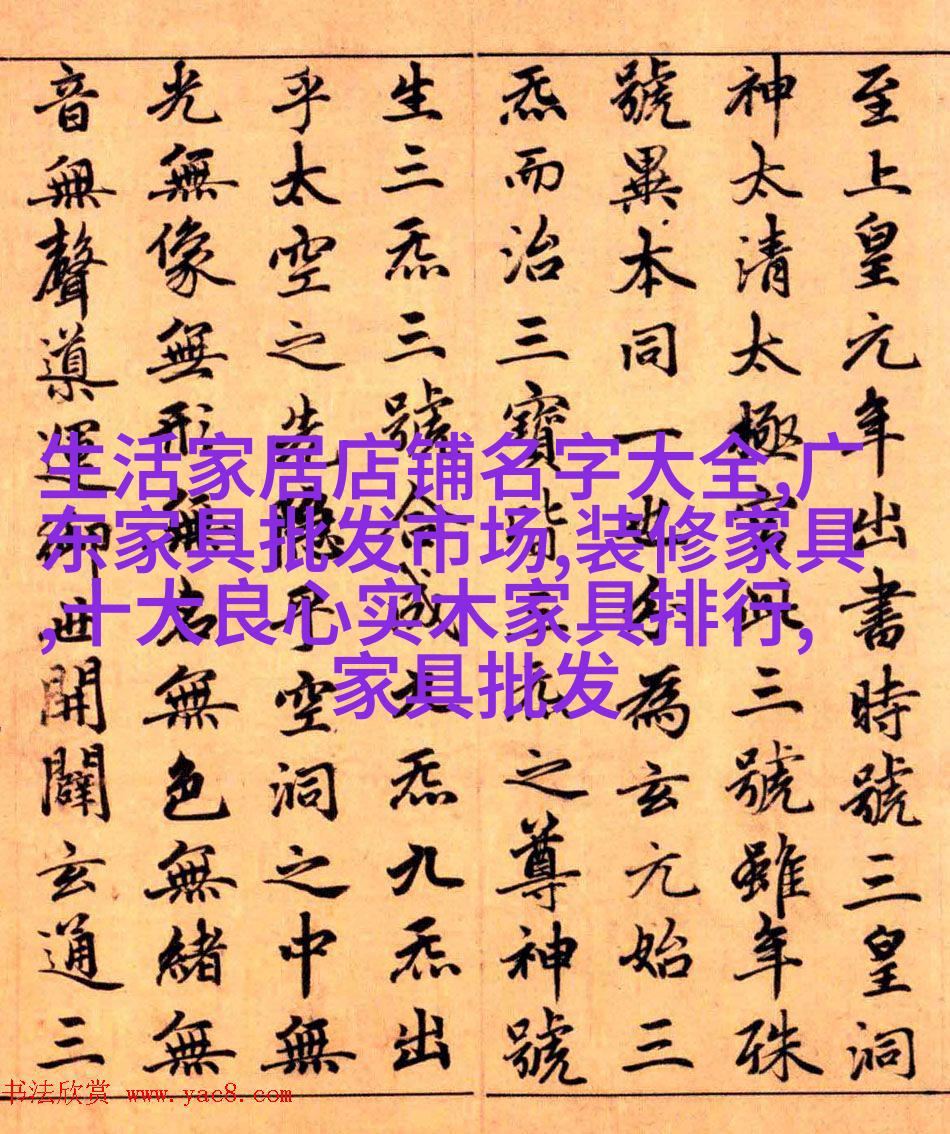 至上皇元年出書時號三皇洞
神太清太極宮此三號雖年殊
號異本同一也分為玄元始三
炁而治三寶皆三炁之尊神號
生三炁三號合成九炁九炁出
乎太空之先隱乎空洞之中無
光無像無形無名無色無緒無
音無聲導運御世開闢玄通三
生活家居店铺名字大全,广
东家具批发市场,装修家具
,十大良心实木家具排行,
家具批发
书法欣赏 www.yac8.com